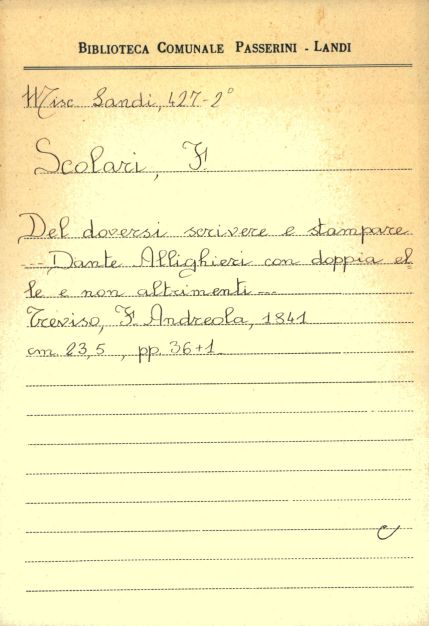 BIBLIOTECA COMUNALE PASSERINI - LANDI
Misc. Landi, 427-2°
Scolari, F.
Del doversi scrivere e stampare
... Dante Allighieri con doppia el=
le e non altrimenti ...
Treviso, F. Andreola, 1841
cm. 23,5 , pp. 36+1.
C